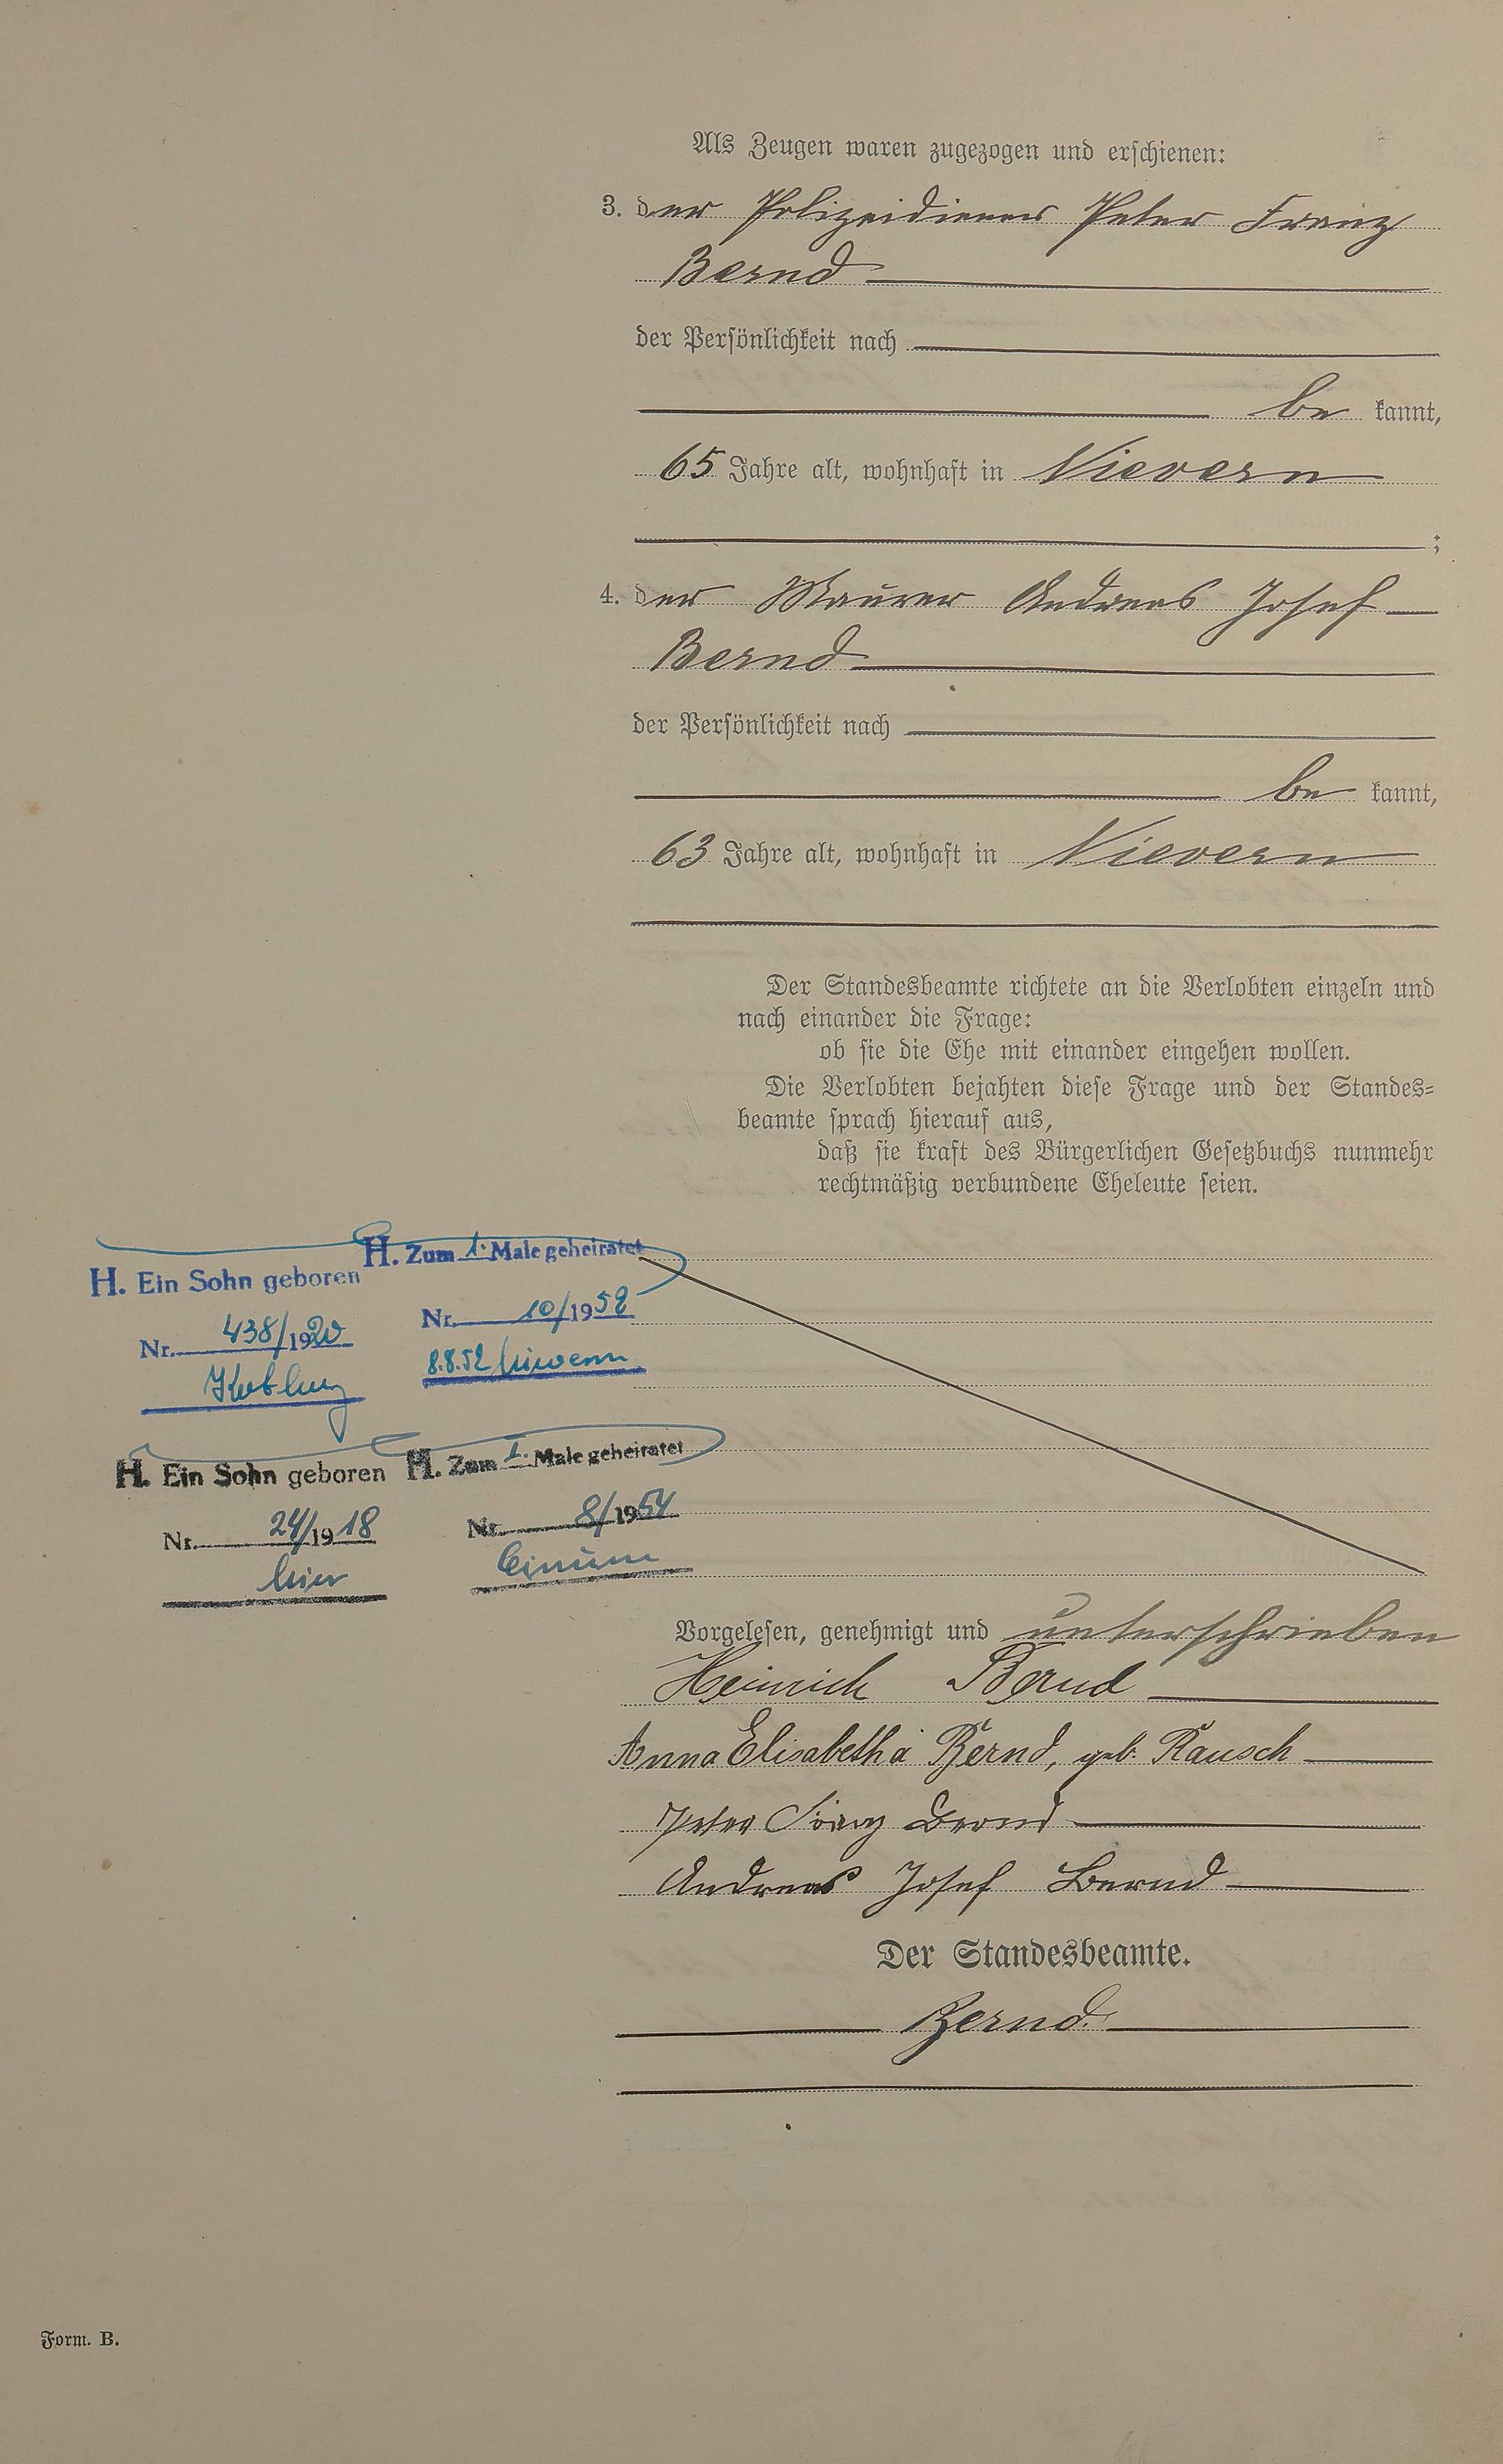 Als Zeugen waren zugezogen und erschienen:
3. der Polizeidiener Peter Franz
Bernd
der Persönlichkeit nach
be kannt,
65 Jahre alt, wohnhaft in Nievern
;
4. der Maurer Andreas Josef
Bernd
der Persönlichkeit nach
be kannt,
63 Jahre alt, wohnhaft in Nievern
Der Standesbeamte richtete an die Verlobten einzeln und
nach einander die Frage:
ob sie die Ehe mit einander eingehen wollen.
Die Verlobten bejahten diese Frage und der Standes=
beamte sprach hierauf aus,
daß sie kraft des Bürgerlichen Gesetzbuchs nunmehr
rechtmäßig verbundene Eheleute seien.
H. Ein Sohn geboren
Nr. 438/1920
Koblenz
H. Zum 1. Male geheiratet
Nr. 10/1952
8.8.52
H. Ein Sohn geboren
Nr. 24/1918
hier
H. Zum I. Male geheiratet
Nr. 8/1954
Vorgelesen, genehmigt und unterschrieben
Heinrich Bernd
Anna Elisabetha Bernd, geb. Rausch
Peter Franz Bernd
Andreas Josef Bernd
Der Standesbeamte.
Bernd.
Form. B.